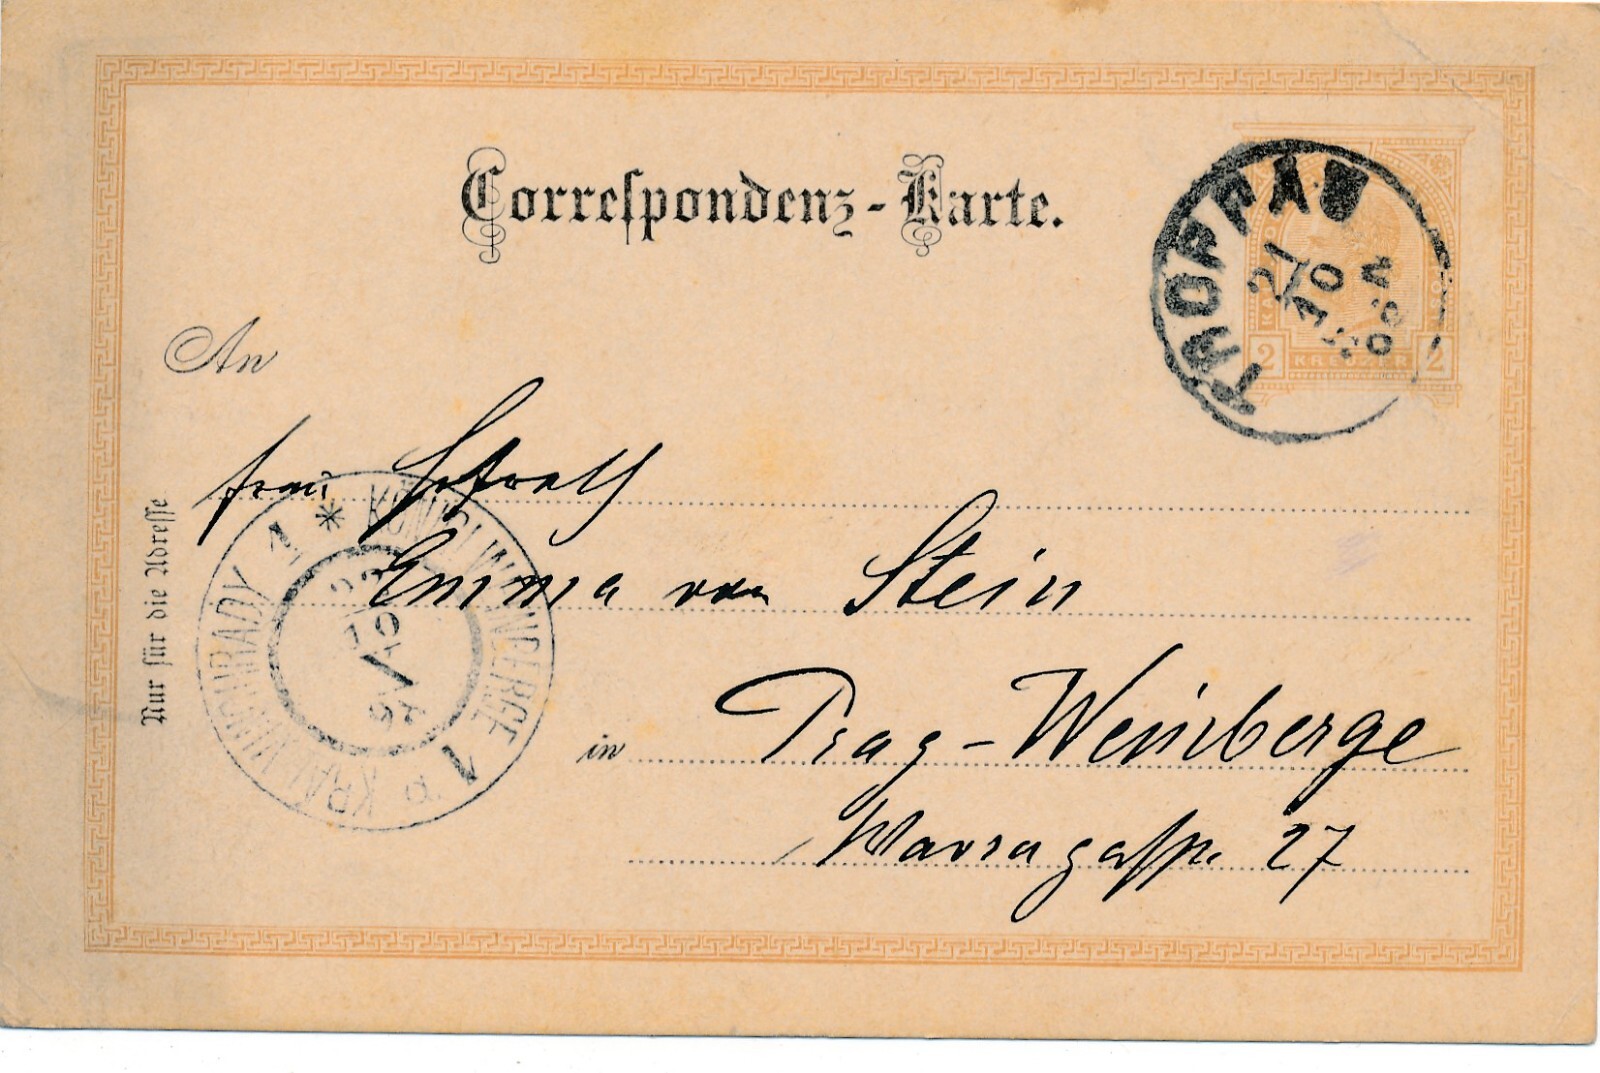 Correspondenz-Karte.
TROPPAU
21
10
2 KREUZER 2
An
Frau Hofrath
Emma von Stein
in Prag-Weinberge
Wavragasse 27
Nur für die Adresse
KÖNIGL. WEINBERGE 1
KRÁL. VINOHRADY 1
22
10